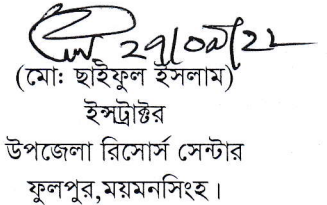 (মোঃ ছাইফুল ইসলাম)
ইন্সট্রাক্টর
উপজেলা রিসোর্স সেন্টার
ফুলপুর,ময়মনসিংহ।